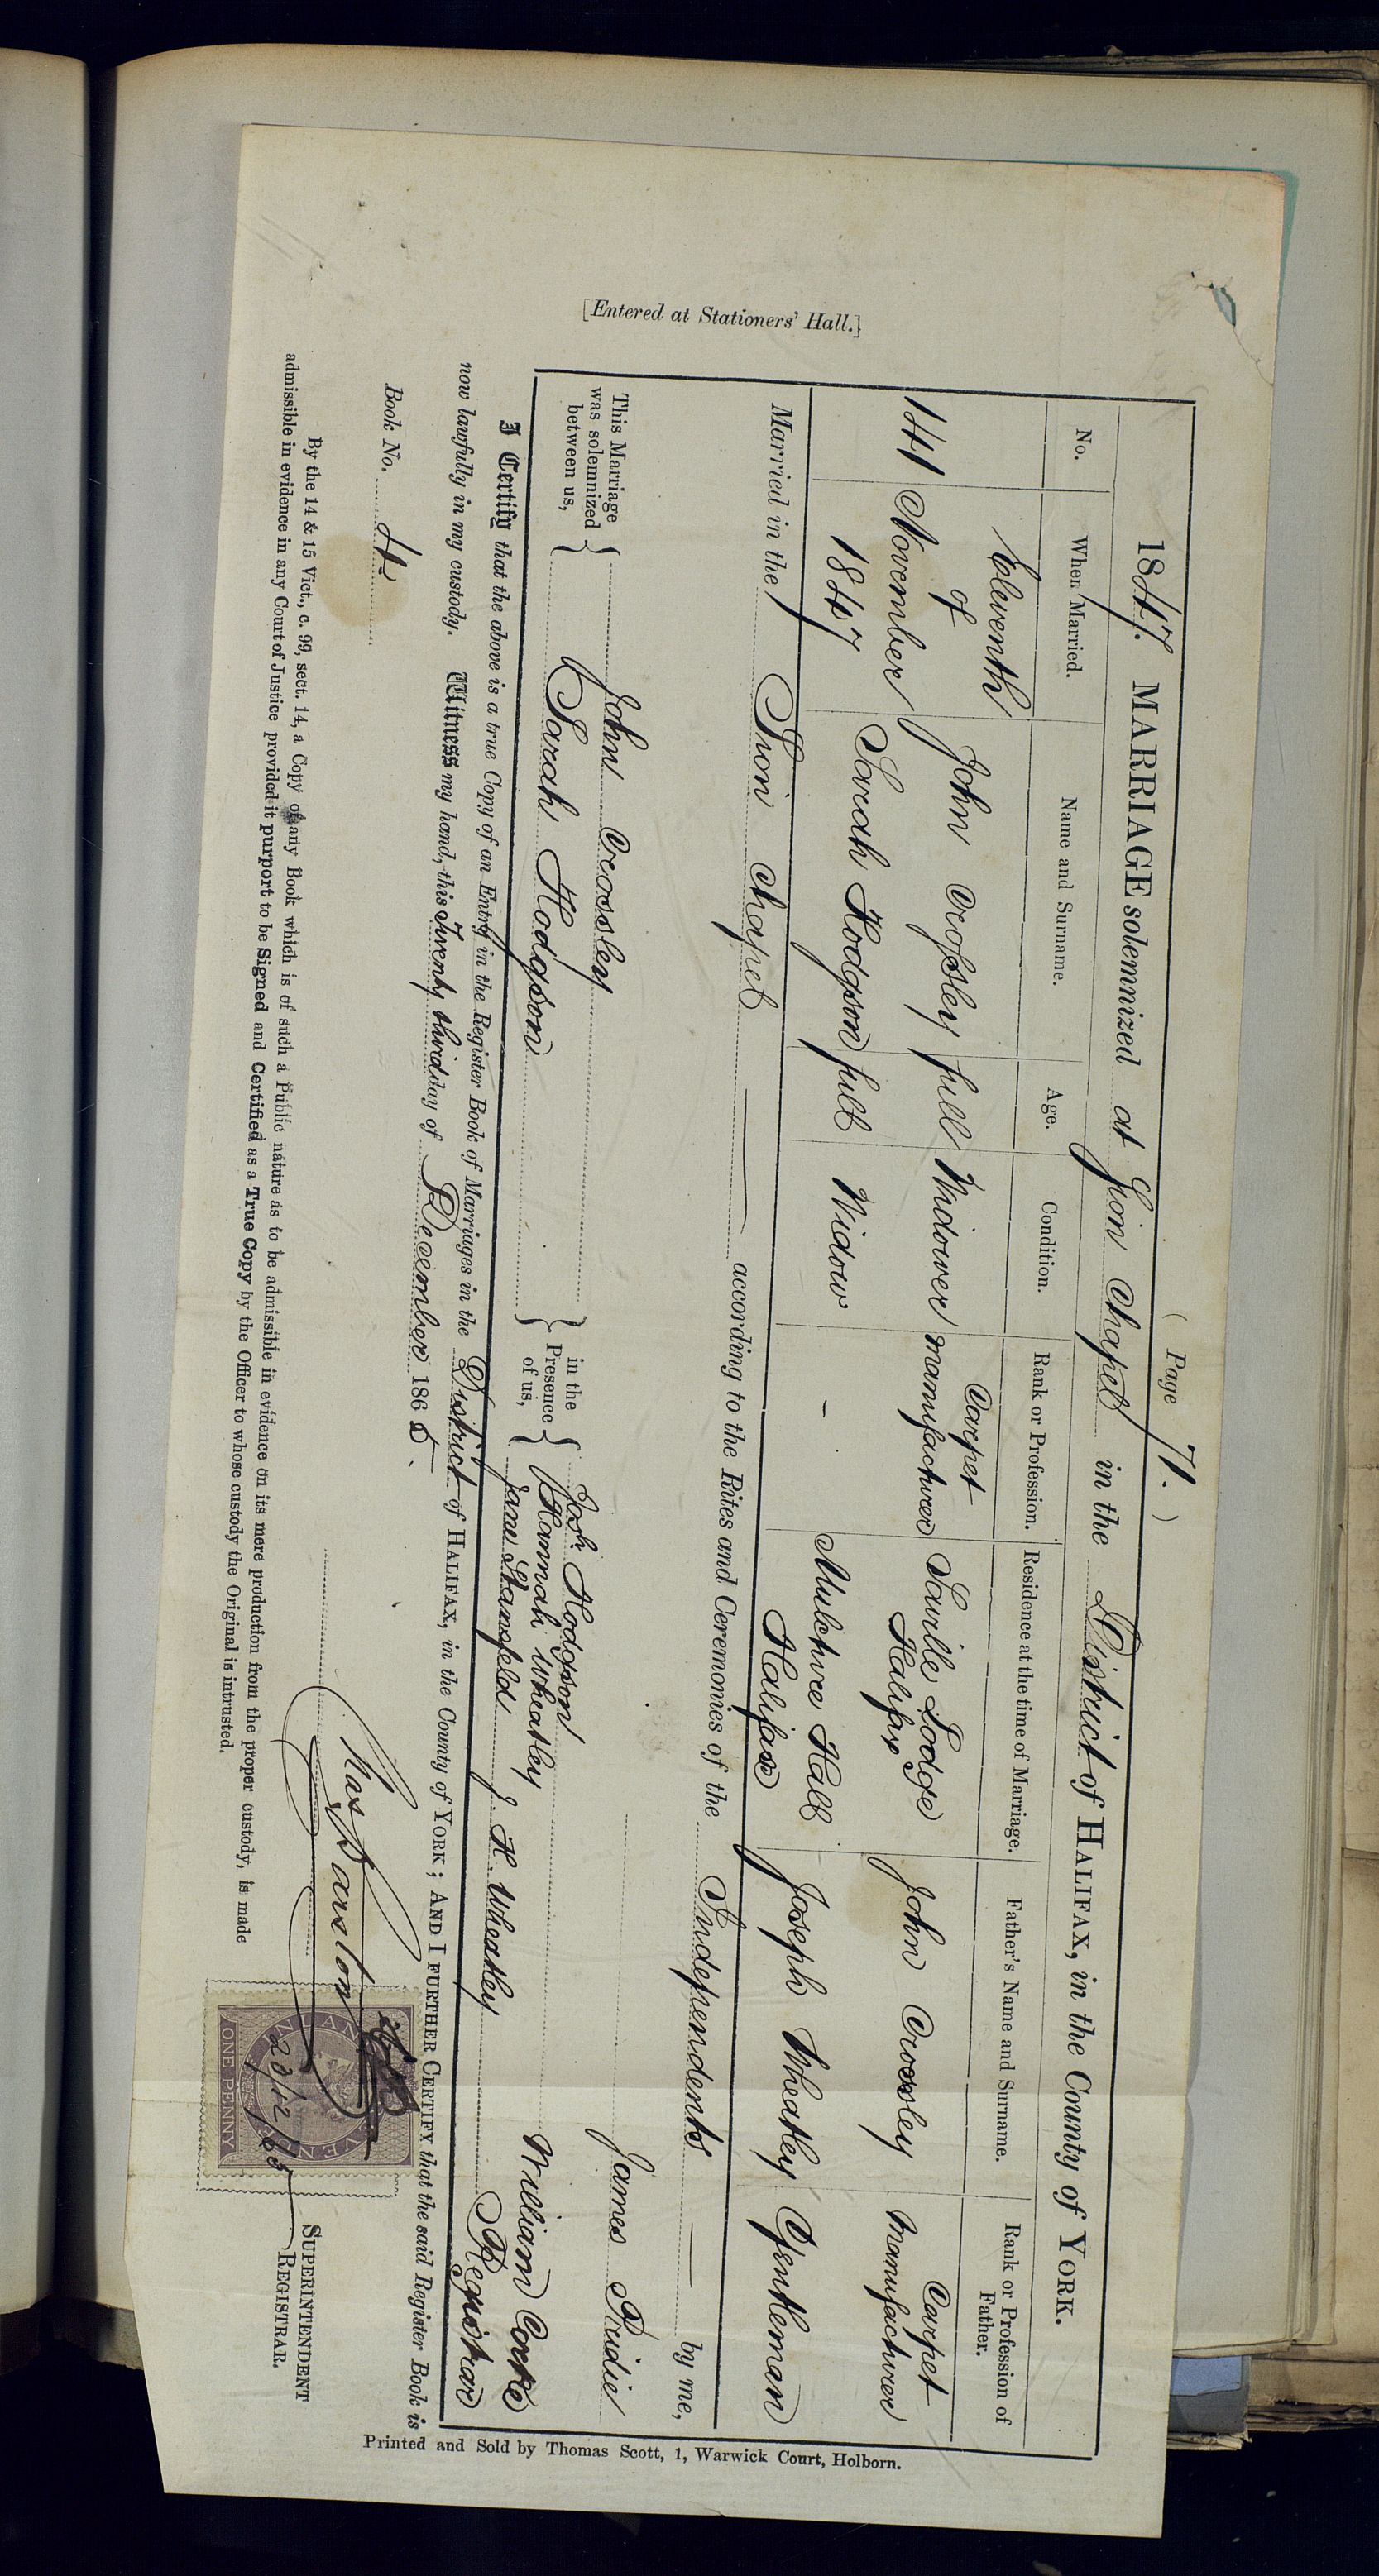 ( Page 71. )
1847. MARRIAGE solemnized at Sion Chapel in the District of HALIFAX, in the County of YORK.
No. When Married. Name and Surname. Age. Condition. Rank or Profession. Residence at the time of Marriage. Father's Name and Surname. Rank or Profession of Father.
141 Eleventh of November 1847 John Crossley full Widower Carpet manufacturer Saville Lodge Halifax John Crossley Carpet Manufacturer
Sarah Hodgson full Widow - Mulcture Hall Halifax Joseph Wheatley Gentleman
Married in the Sion Chapel according to the Rites and Ceremonies of the Independents by me,
James Pridie
This Marriage was solemnized between us,
John Crossley
Sarah Hodgson
in the Presence of us,
Josh. Hodgson
Hannah Wheatley
Jane Stansfeld. J. H. Wheatley
William Corke
Registrar
I Certify that the above is a true Copy of an Entry in the Register Book of Marriages in the District of HALIFAX, in the County of YORK; AND I FURTHER CERTIFY that the said Register Book is
now lawfully in my custody. Witness my hand, this Twenty third day of December 1865.
Book No. 4.
SUPERINTENDENT
REGISTRAR.
INLAND REVENUE
ONE PENNY
23/12/65
By the 14 & 15 Vict., c. 99, sect. 14, a Copy of any Book which is of such a Public nature as to be admissible in evidence on its mere production from the proper custody, is made
admissible in evidence in any Court of Justice provided it purport to be Signed and Certified as a True Copy by the Officer to whose custody the Original is intrusted.
[Entered at Stationers' Hall.]
Printed and Sold by Thomas Scott, 1, Warwick Court, Holborn.